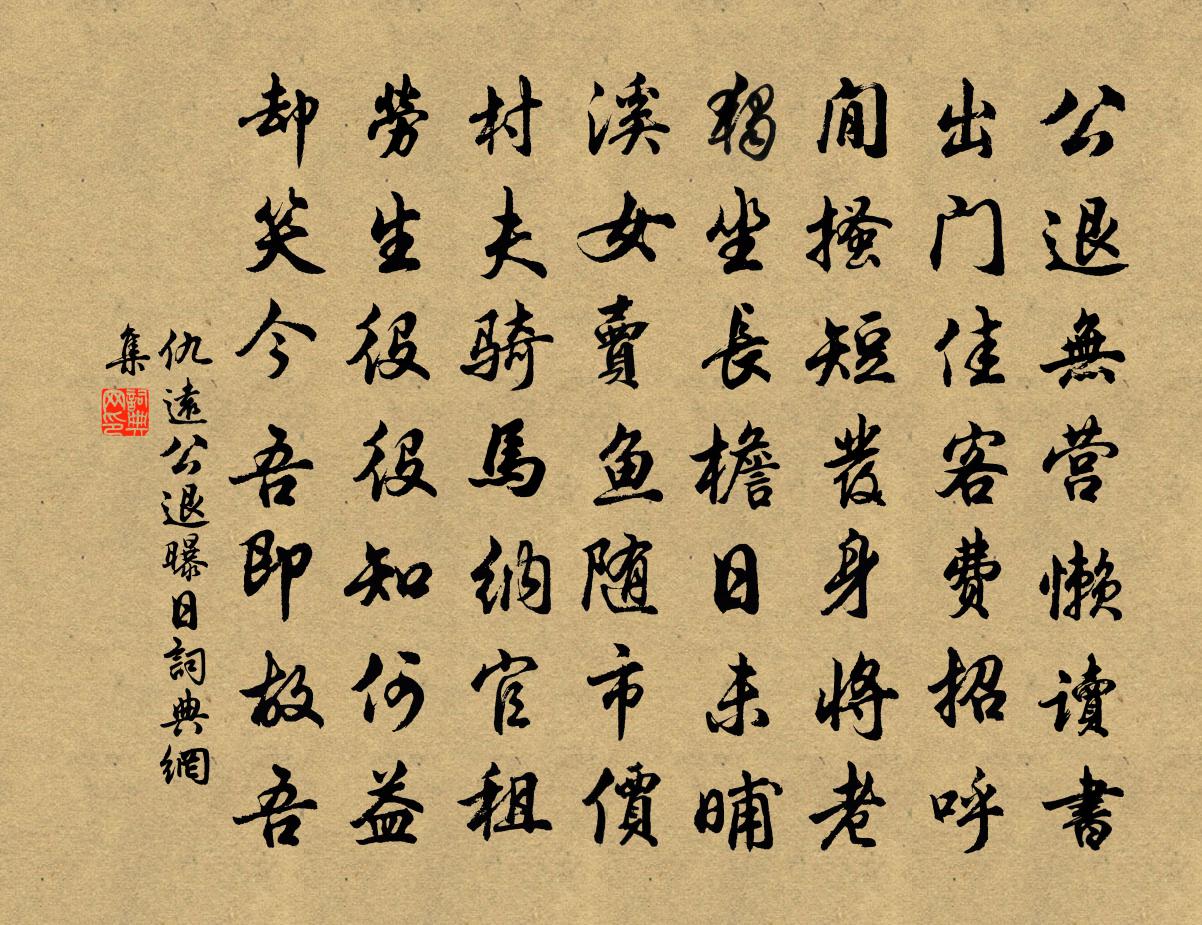 公退無营懒读書
出门佳客費招呼
閒搔短發身將老
獨坐長檐日未晡
溪女賣鱼随市價
村夫騎馬納官租
勞生役役知何益
却笑今吾即故吾
仇遠公退曝日詞典網
集
詞典网印